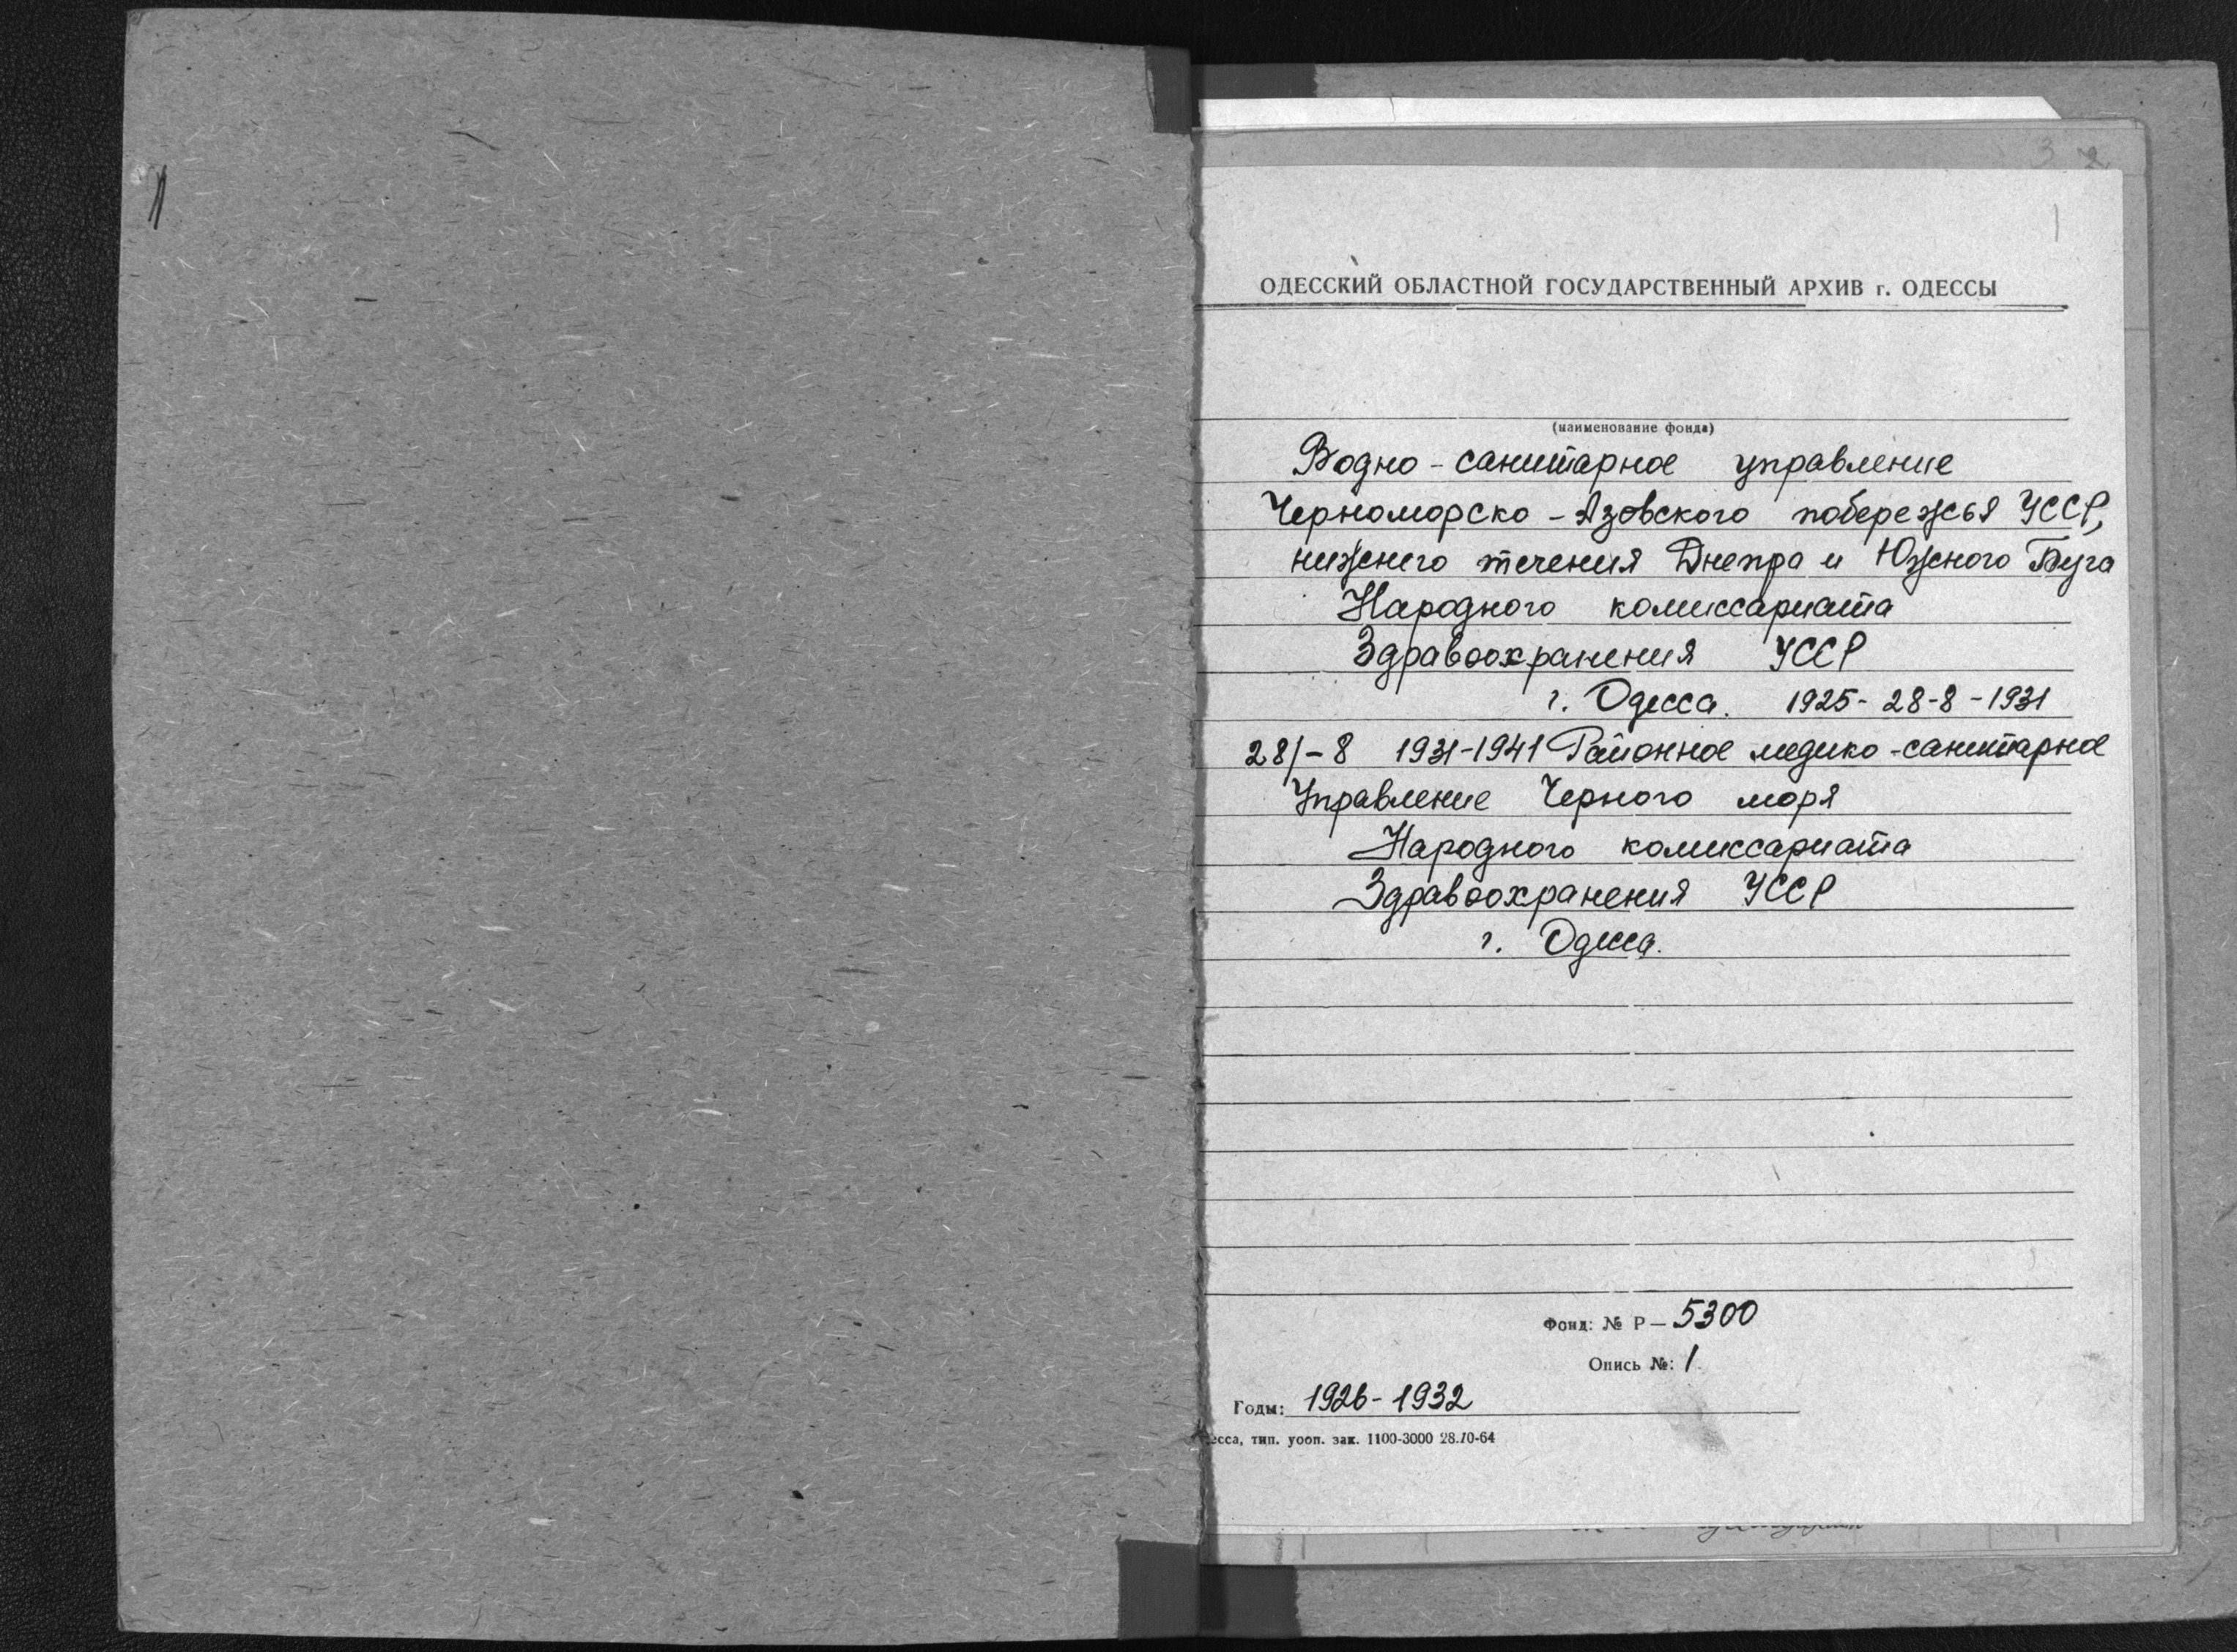 3 2
1
ОДЕССКИЙ ОБЛАСТНОЙ ГОСУДАРСТВЕННЫЙ АРХИВ г. ОДЕССЫ
(наименование фонда)
Водно-санитарное управление
Черноморско-Азовского побережья УССР,
нижнего течения Днепра и Южного Буга
Народного комиссариата
Здравоохранения УССР
г. Одесса. 1925-28-8-1931
28/-8 1931-1941 Районное медико-санитарное
Управление Черного моря
Народного комиссариата
Здравоохранения УССР
г. Одесса.
Фонд: № Р—5300
Опись №: 1
Годы: 1926-1932
есса, тип. уооп. зак. 1100-3000 28.10-64